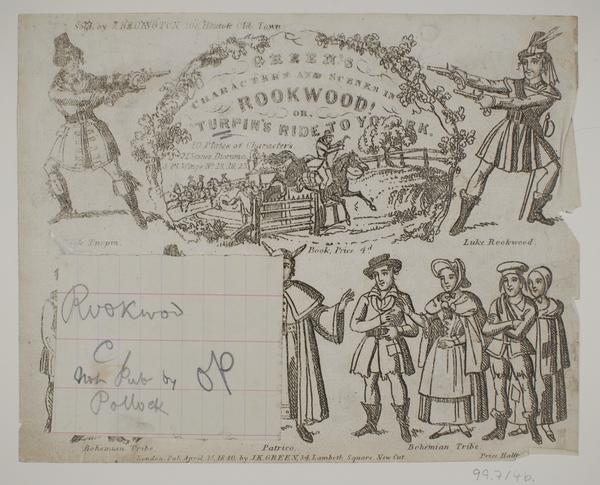 Sold, by J. REDINGTON, 208, Hoxton Old Town
GREEN'S
CHARACTERS AND SCENES IN
ROOKWOOD!
OR,
TURPIN'S RIDE TO YORK.
10 Plates of Characters
Scenes,
Turpin.
Book, Price 4d
Luke Rookwood.
Rookwood
Not Pub by
Pollock
Bohemian Tribe
Patrico.
Bohemian Tribe
London, Pub. April, 15, 1840, by J.K. GREEN, 34, Lambeth Square, New Cut.
Price Half
99.7/46.